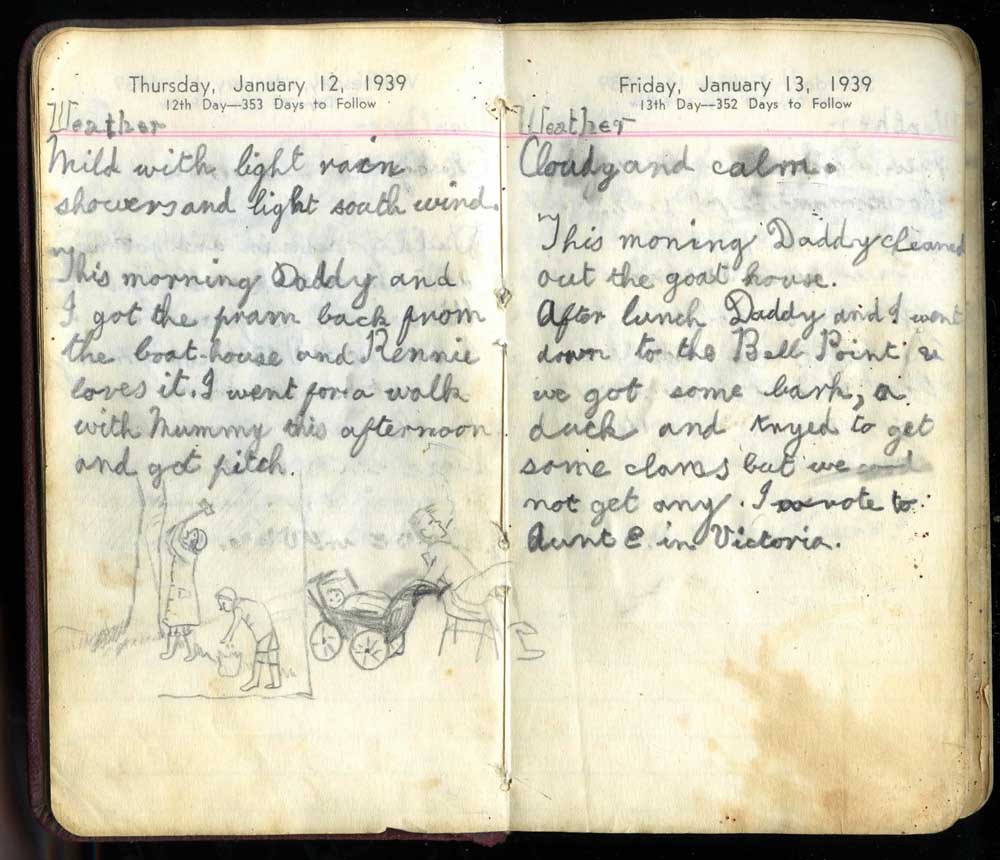 Thursday, January 12, 1939
12th Day—353 Days to Follow
Weather
Mild with light rain
showers and light south wind.
This morning Daddy and
I got the pram back from
the boat-house and Rennie
loves it. I went for a walk
with Mummy this afternoon
and got pitch.
Friday, January 13, 1939
13th Day—352 Days to Follow
Weather
Cloudy and calm.
This moning Daddy cleaned
out the goat house.
After lunch Daddy and I went
down to the Bell Point &
we got some bark, a
duck and tryed to get
some clams but we
not get any. I wrote to
Aunt E. in Victoria.